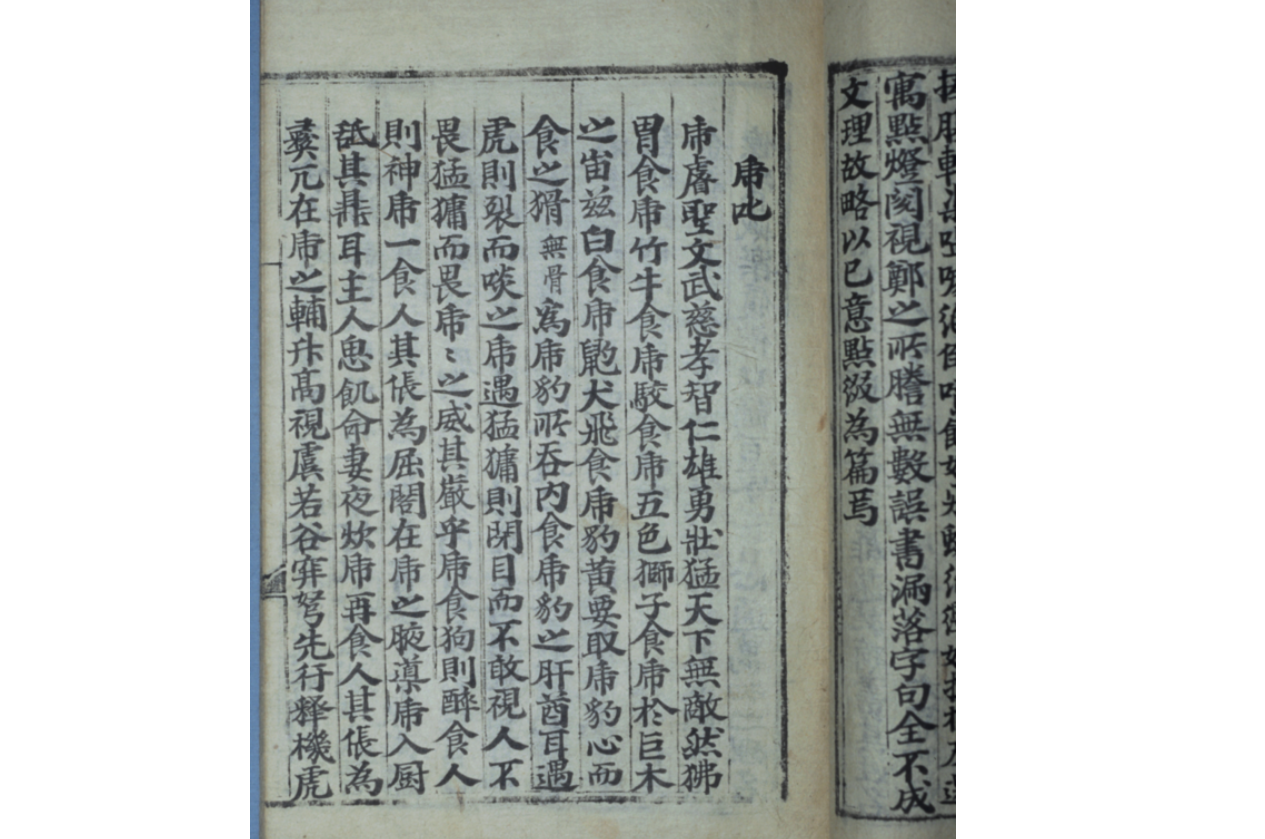 寓點燈閱視鄭之所謄無數誤書漏落字句全不成
文理故略以已意點綴為篇焉
乕叱
乕睿聖文武慈孝智仁雄勇壯猛天下無敵然狒
胃食乕竹牛食乕駮食乕五色獅子食乕於巨木
之峀茲白食乕䶂犬飛食乕豹黄要取乕豹心而
食之猾無骨為乕豹所吞内食乕豹之肝酋耳遇
虎則裂而啖之乕遇猛㺎則閉目而不敢視人不
畏猛㺎而畏乕〻之威其嚴乎乕食狗則醉食人
則神乕一食人其倀為屈閣在乕之腋導乕入厨
舐其鼎耳主人思飢命妻夜炊乕再食人其倀為
彛兀在乕之輔升高視虞若谷穽弩先行釋機虎